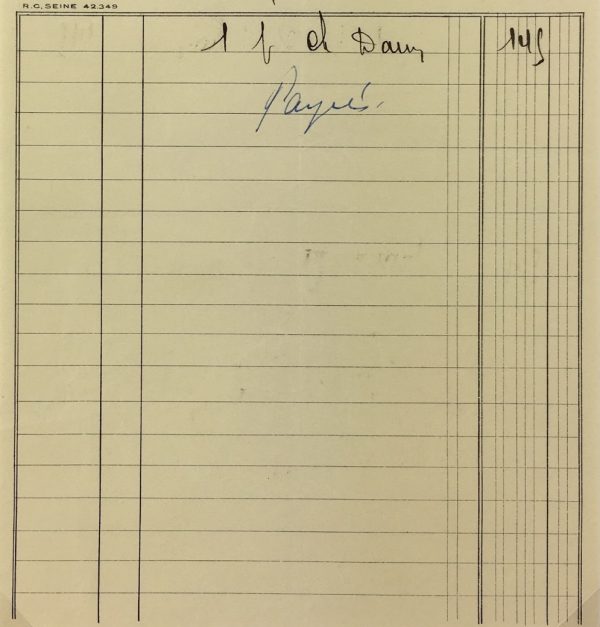 R.C, SEINE 42.349
1 f ch Dam 145
Payés.